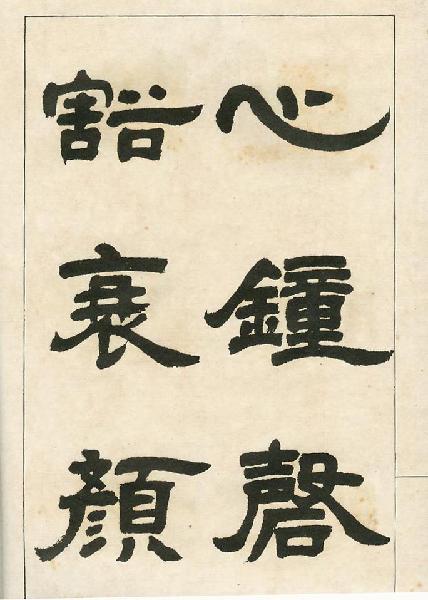 心鐘磬
豁衰顏